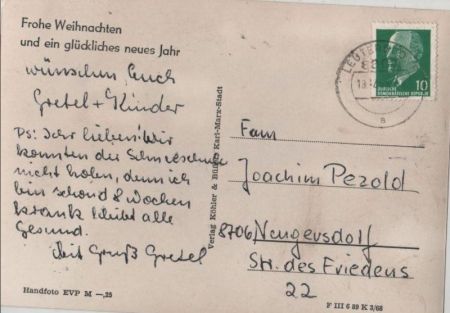 Frohe Weihnachten
und ein glückliches neues Jahr
wünschen Euch
Gretel + Kinder
Ps: Ihr lieben! Wir
konnten die
nicht holen, denn ich
bin schon 8 Wochen
krank bleibt alle
Gesund.
Mit Gruß Gretel
Handfoto EVP M –,25
Verlag Köhler & Büßer Karl-Marx-Stadt
10
DEUTSCHE
DEMOKRATISCHE REPUBLIK
a
Fam
Joachim Pezold
8706 Neugersdorf
Str. des Friedens
22
F III 6 89 K 3/68